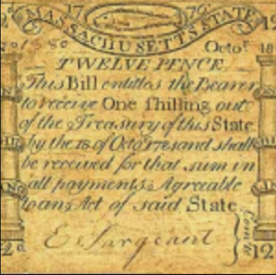 17
MASSACHUSETTS STATE
Octoʳ 18
TWELVE PENCE
This Bill entitles the Bearer
to receive One ſhilling out
of the Treasury of this State
by the 18 of Octo and shall
be received for that sum in
all payments Agreeable
to an Act of said State
E Sargeant
2d
12